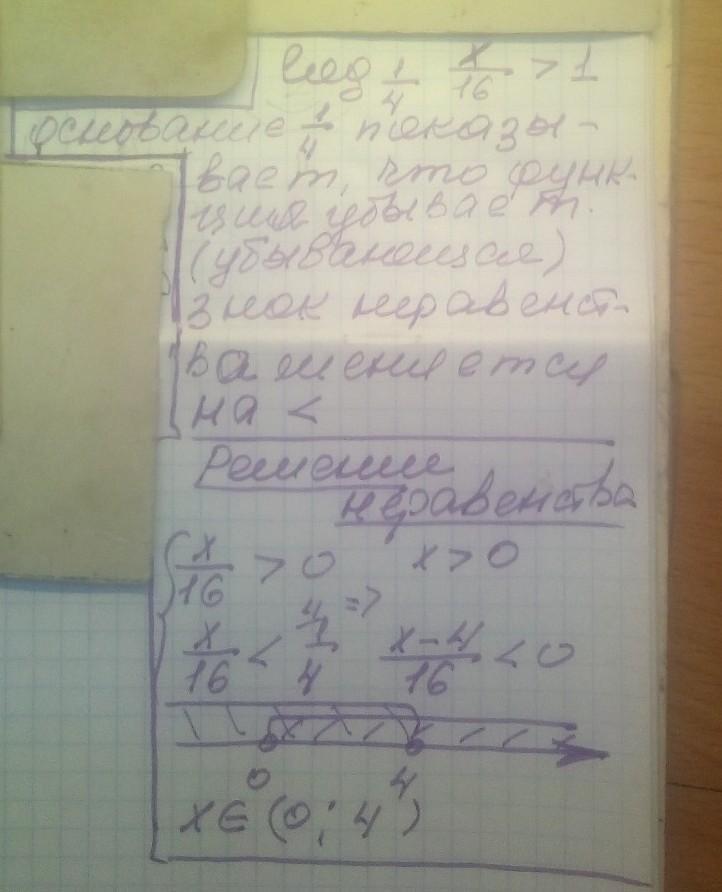 log 1/4 x/16 > 1
основание 1/4 показы-
вает, что функ-
ция убывает.
(убывающая)
знак неравенст-
ва меняется
на <
Решение
неравенства
{ x/16 > 0 x > 0
x/16 < 1/4 4 => x-4/16 < 0
0 4
x ∈ (0; 4)